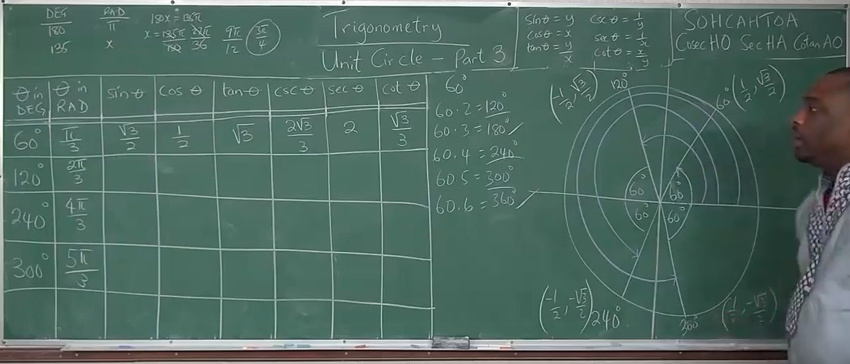 DEG RAD 180x = 135π
180 π x = 135π/180 27π/36 9π/12 3π/4
135 x
Trigonometry
Unit Circle – Part 3
sinθ = y cscθ = 1/y
cosθ = x secθ = 1/x
tanθ = y/x cotθ = x/y
SOHCAHTOA
CosecHO SecHA CotanAO
θ in DEG θ in RAD sinθ cosθ tanθ cscθ secθ cotθ
60° π/3 √3/2 1/2 √3 2√3/3 2 √3/3
120° 2π/3
240° 4π/3
300° 5π/3
60°
60·2 = 120°
60·3 = 180°
60·4 = 240°
60·5 = 300°
60·6 = 360°
(-1/2, √3/2) 120° 60° (1/2, √3/2)
60° 60°
60° 60°
(-1/2, -√3/2) 240°